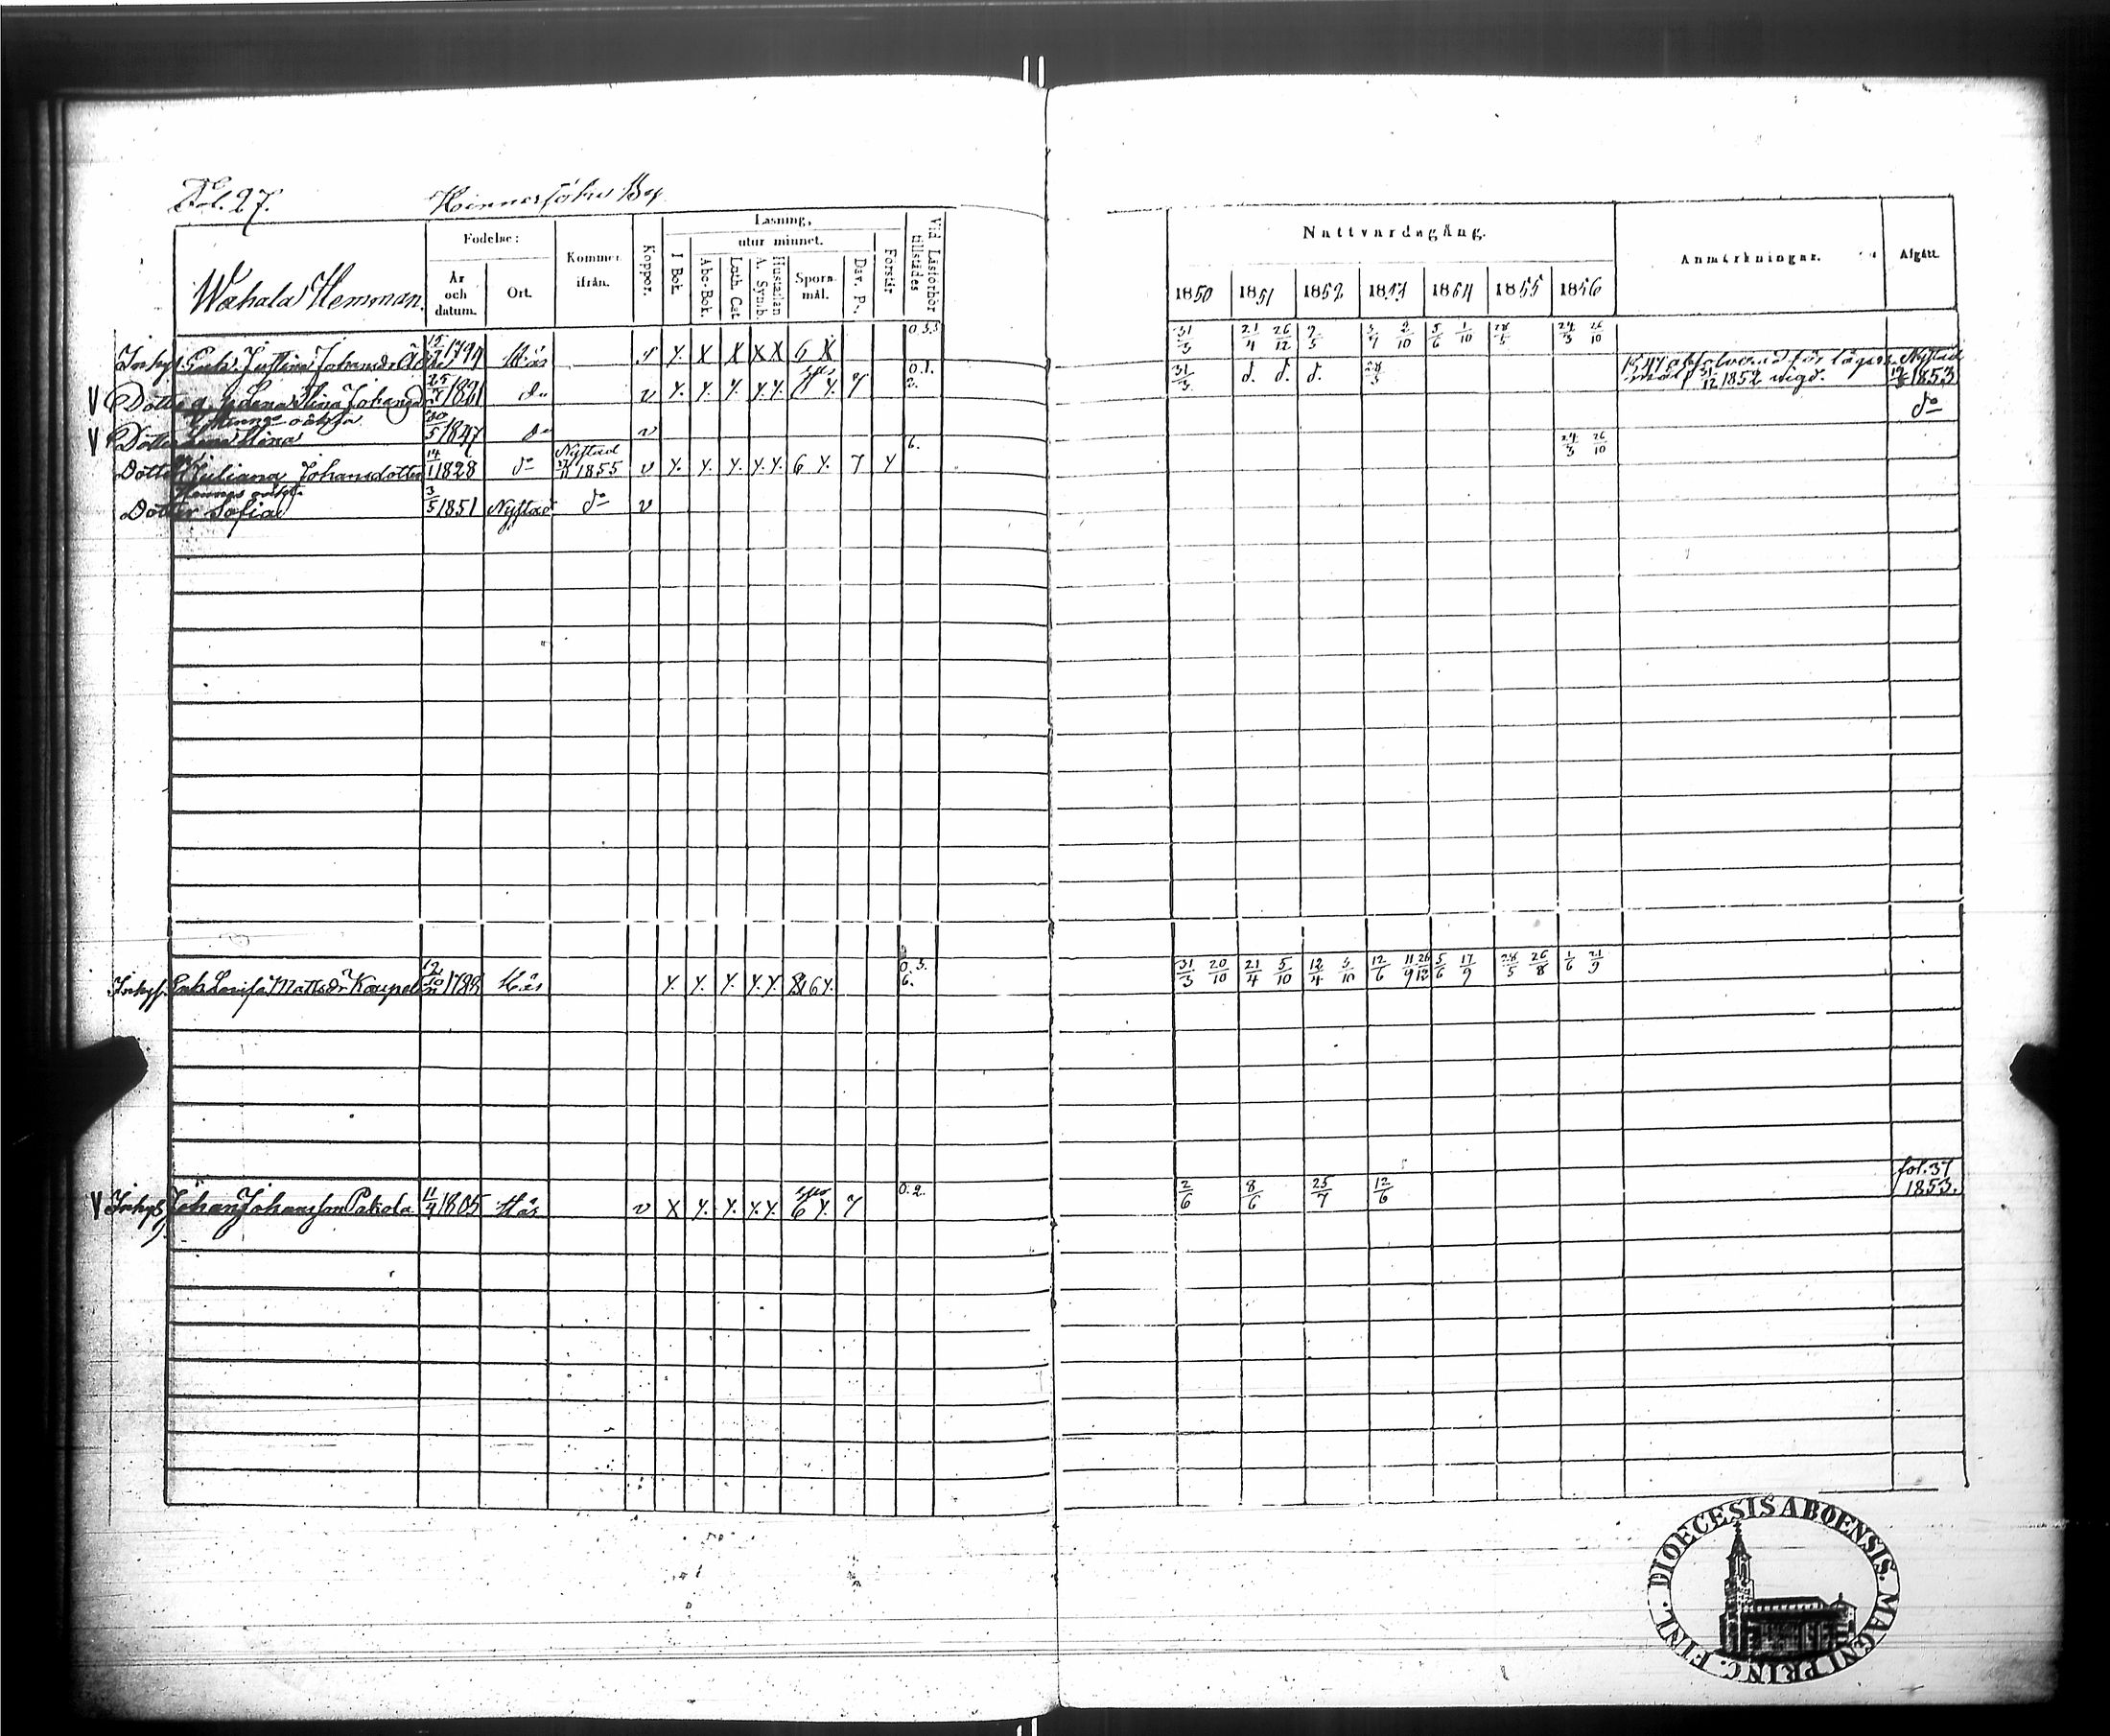 Fol. 27. Hinnerjoki By
Wähälä Hemman.
Födelse:
År och datum.
Ort.
Kommen ifrån.
Koppor.
Läsning,
I Bok.
utur minnet.
Abc-Bok.
Luth. Cat.
A. Symb.
Hustaflan
Spörsmål.
Dav. Ps.
Förstår
Vid Läsförhör tillstädes
Nattvardsgång.
1850 1851 1852 1853 1854 1855 1856
Anmärkningar.
Afgått.
Inhys. Justina Johansdr 1794 Hås s y. X X X X 6 X 0.3.5 31/3 21/4 26/12 9/5 2/10 5/6 1/10 28/5 24/3 26/10
V Dotter Lena Stina Johansd 25/ 1821 do v y. y. y. y. y. y. 7 0.1. 2. 31/3 d. d. d. 28/3 12 1852 vigd. Nystad 1853
Hennes oäkta
V Dotter Lena Stina 30/5 1847 do v do
Dotter Juliana Johansdotter 14/1 1828 do Nystad 1855 v y. y. y. y. y. 6 y. 7 y 6. 24/3 26/10
Hennes oäkt.
Dotter Sofia 3/5 1851 Nystad do v
Inhys. Lovisa Mattsdr 12/10 1788 Hås y. y. y. y. y. 6 y. 0. 5. 6. 31/3 20/10 21/4 5/10 12/4 3/10 12/6 11/9 26/12 5/6 17/9 28/5 26/8 1/6 21/9
V Inhys Johan Johansson Pakola 11/4 1805 Hås v X y. y. y. y. 6 y. 7 0. 2. 2/6 8/6 25/7 12/6 fol. 37 1853.
DIOECESIS ABOENSIS. MAGNI PRINC. FINL.